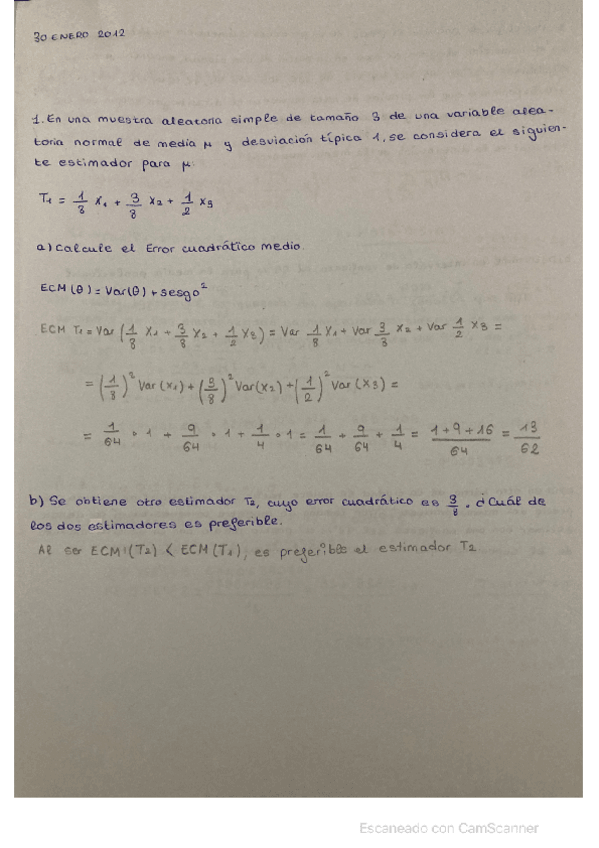 30 ENERO 2012
1. En una muestra aleatoria simple de tamaño 3 de una variable alea-
toria normal de media μ y desviación típica 1, se considera el siguien-
te estimador para μ
T1 = 1/8 X1 + 3/8 X2 + 1/2 X3
a) Calcule el Error cuadrático medio.
ECM (θ) = Var(θ) + sesgo²
ECM T1 = Var (1/8 X1 + 3/8 X2 + 1/2 X3) = Var 1/8 X1 + Var 3/8 X2 + Var 1/2 X3 =
= (1/8)² Var (X1) + (3/8)² Var(X2) + (1/2)² Var (X3) =
= 1/64 · 1 + 9/64 · 1 + 1/4 · 1 = 1/64 + 9/64 + 1/4 = 1+9+16/64 = 13/62
b) Se obtiene otro estimador T2, cuyo error cuadrático es 3/8. ¿Cuál de
los dos estimadores es preferible.
Al ser ECM (T2) < ECM (T1), es preferible el estimador T2
Escaneado con CamScanner